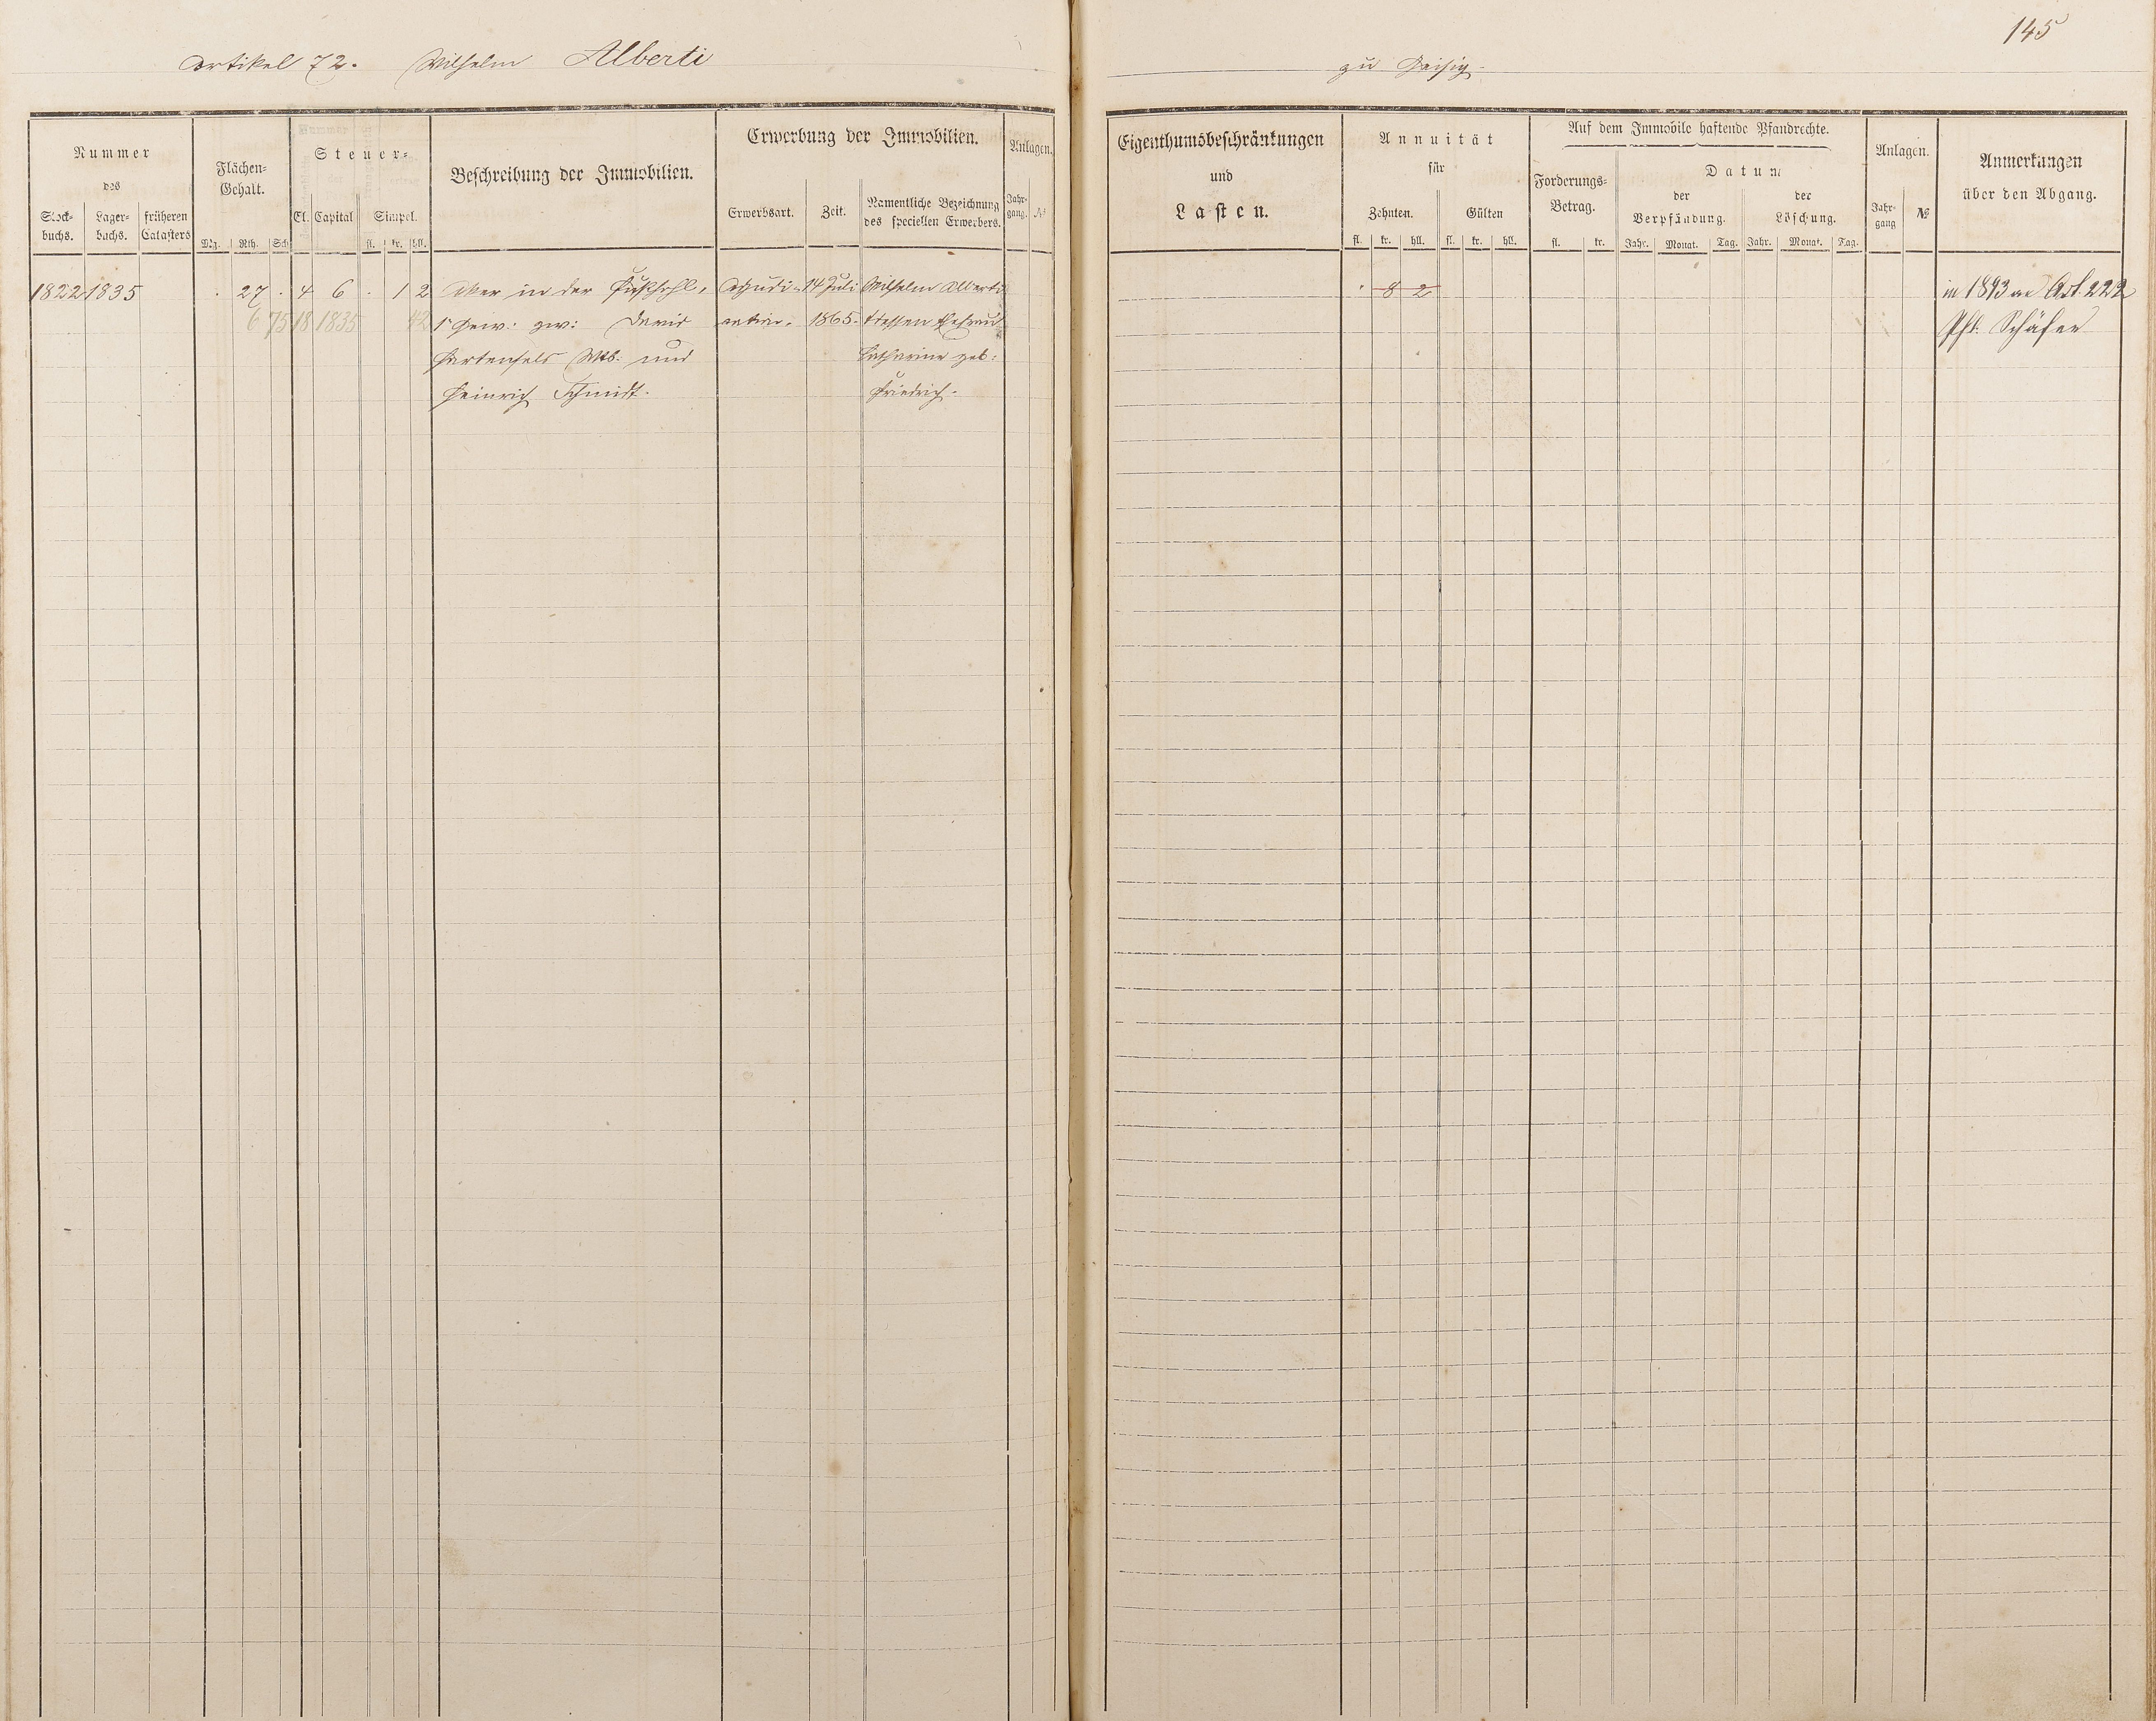 145
Artikel 72. Wilhelm Alberti
zu
Nummer
des
Stock-
buchs.
Lager-
buchs.
früheren
Catasters
Flächen-
Gehalt.
Mg. Rth. Sch
Steuer-
Cl. Capital Simpel.
fl. kr. hll.
Beschreibung der Immobilien.
Erwerbung der Immobilien.
Erwerbsart. Zeit.
Namentliche Bezeichnung
des speciellen Erwerbers.
Anlagen.
Jahr-
gang. №
Eigenthumsbeschränkungen
und
Lasten.
Annuität
für
Zehnten. Gülten
fl. kr. hll. fl. kr. hll.
Auf dem Immobile haftende Pfandrechte.
Forderungs-
Betrag.
fl. kr.
Datum
der
Verpfändung.
der
Löschung.
Jahr. Monat. Tag. Jahr. Monat. Tag.
Anlagen.
Jahr-
gang №
Anmerkungen
über den Abgang.
1822 1835 . 27 . 4 6 . 1 2 Aker in der Adjudi- 14 Juli Wilhelm Alberti
6 75 18 1835 42 1r Gew: zw: David cation. 1865. dessen Ehefrau
Hartenfels Wtb. und Catharine geb:
Heinrich Schmidt. Friedrich.
. 8 2
in 1893 an Art. 222
Phil. Schäfer